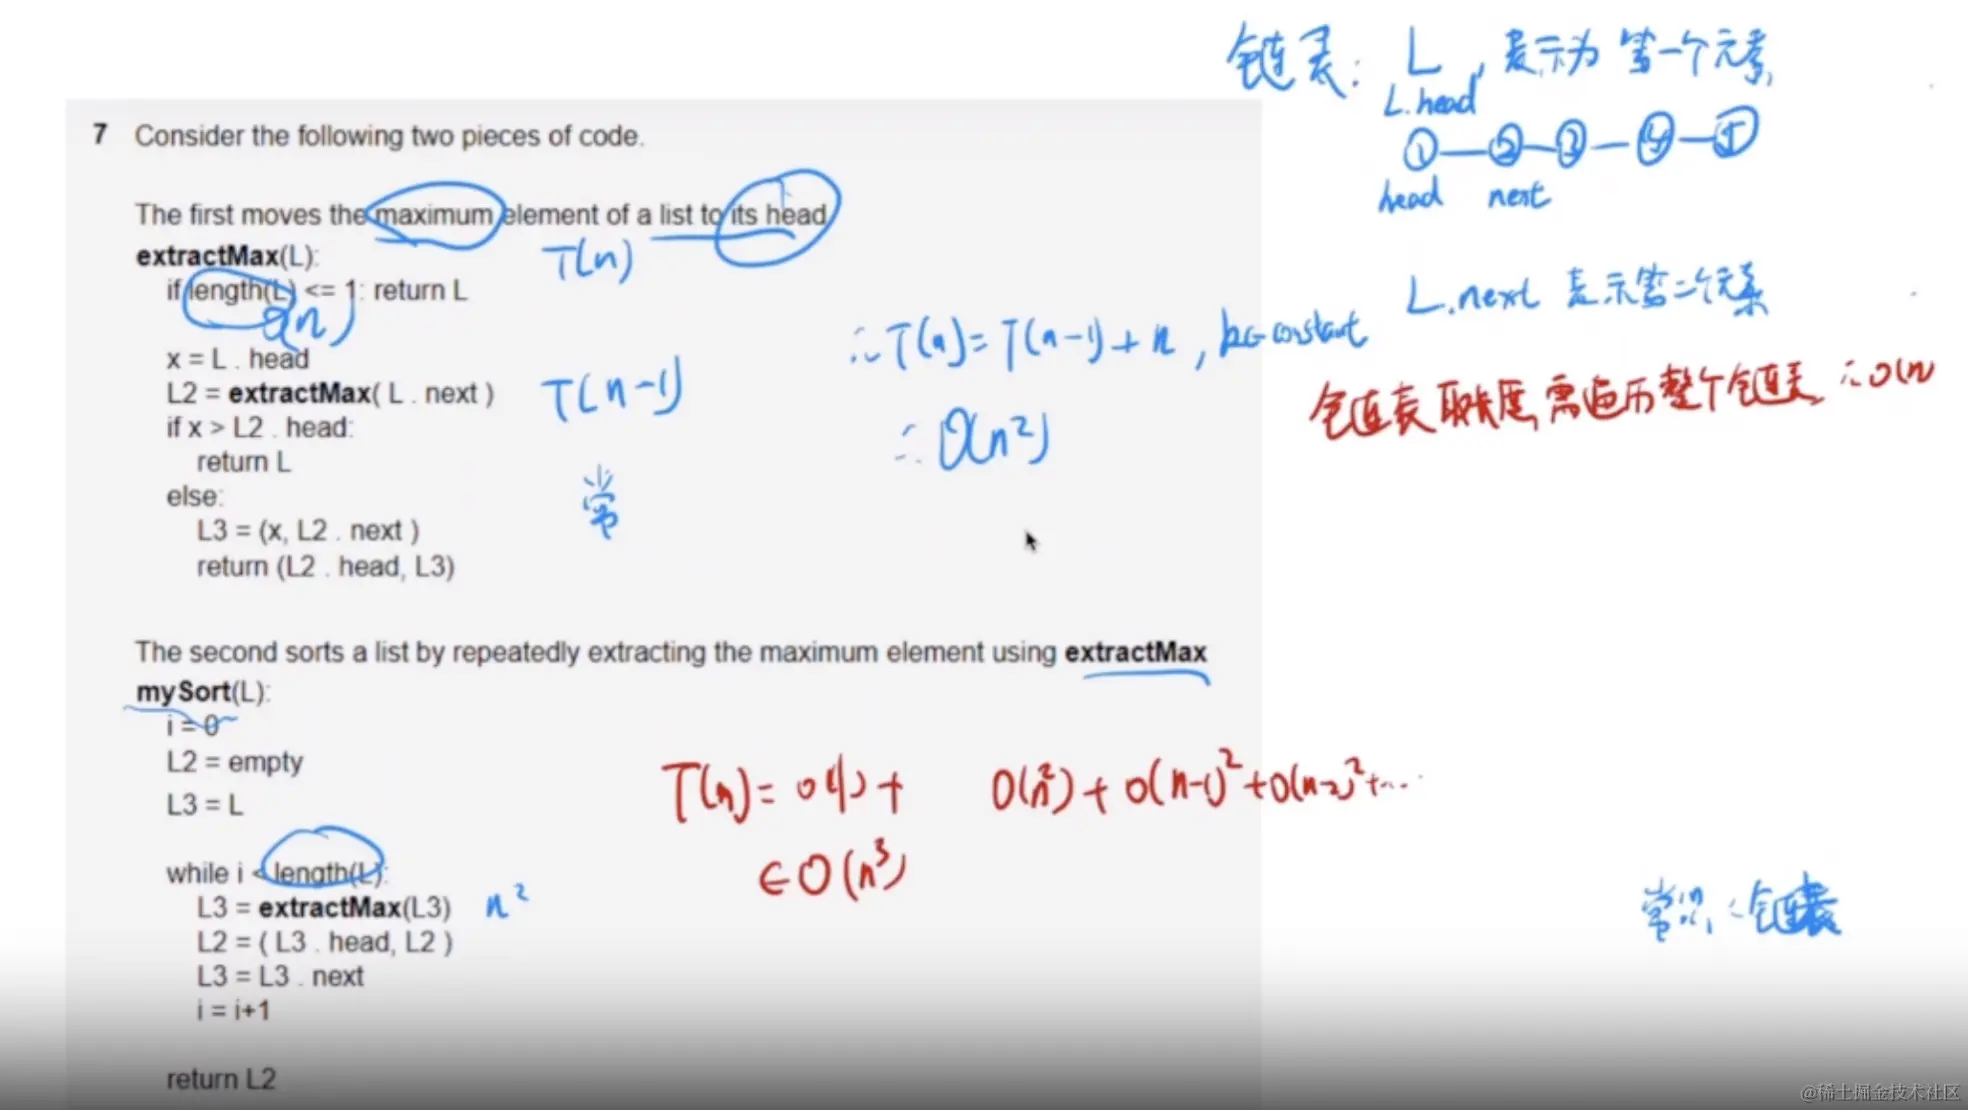 仓链表: L, 表示为 第一个元素
L.head
① ② ③ ④ ⑤
head next
7 Consider the following two pieces of code.
The first moves the maximum element of a list to its head
extractMax(L):
T(n)
if length(L) <= 1: return L
O(n)
L.next 表示第二个元素
x = L . head
∴ T(n) = T(n-1) + n, constant
L2 = extractMax( L . next )
T(n-1)
链表取长度, 需遍历整个链表 ∴ O(n
if x > L2 . head:
∴ O(n²)
return L
else:
常
L3 = (x, L2 . next )
return (L2 . head, L3)
The second sorts a list by repeatedly extracting the maximum element using extractMax
mySort(L):
i = 0
L2 = empty
T(n) = O(1) + O(n²) + O(n-1)² + O(n-2)² + ...
L3 = L
∈ O(n³)
while i < length(L):
L3 = extractMax(L3)
n²
L2 = ( L3 . head, L2 )
L3 = L3 . next
i = i+1
return L2
@稀土掘金技术社区